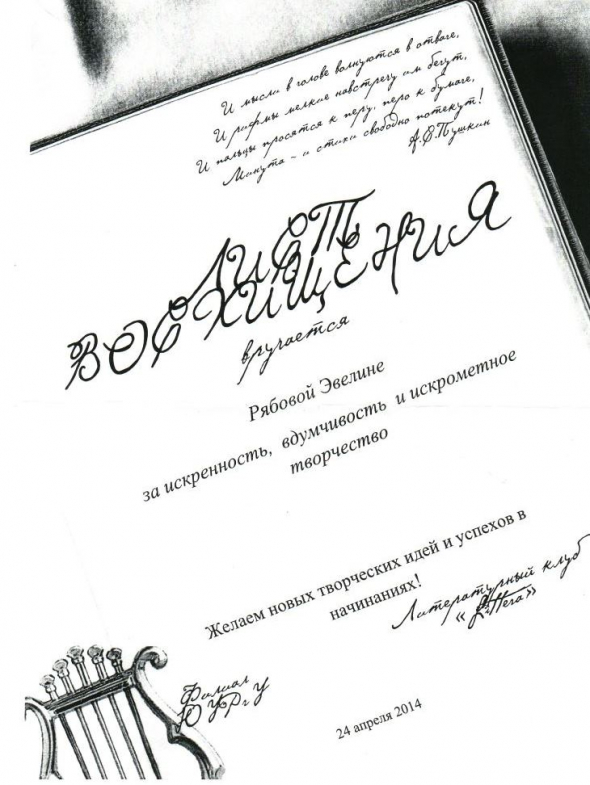 И мысли в голове волнуются в отваге,
И рифмы мелкие навстречу им бегут,
И пальцы просятся к перу, перо к бумаге,
Минута – и стихи свободно потекут!
А.С.Пушкин
ЛИСТ
ВОСХИЩЕНИЯ
вручается
Рябовой Эвелине
за искренность, вдумчивость и искрометное
творчество
Желаем новых творческих идей и успехов в
начинаниях!
Литературный клуб
«Littera»
Филиал
ЮУРГУ
24 апреля 2014